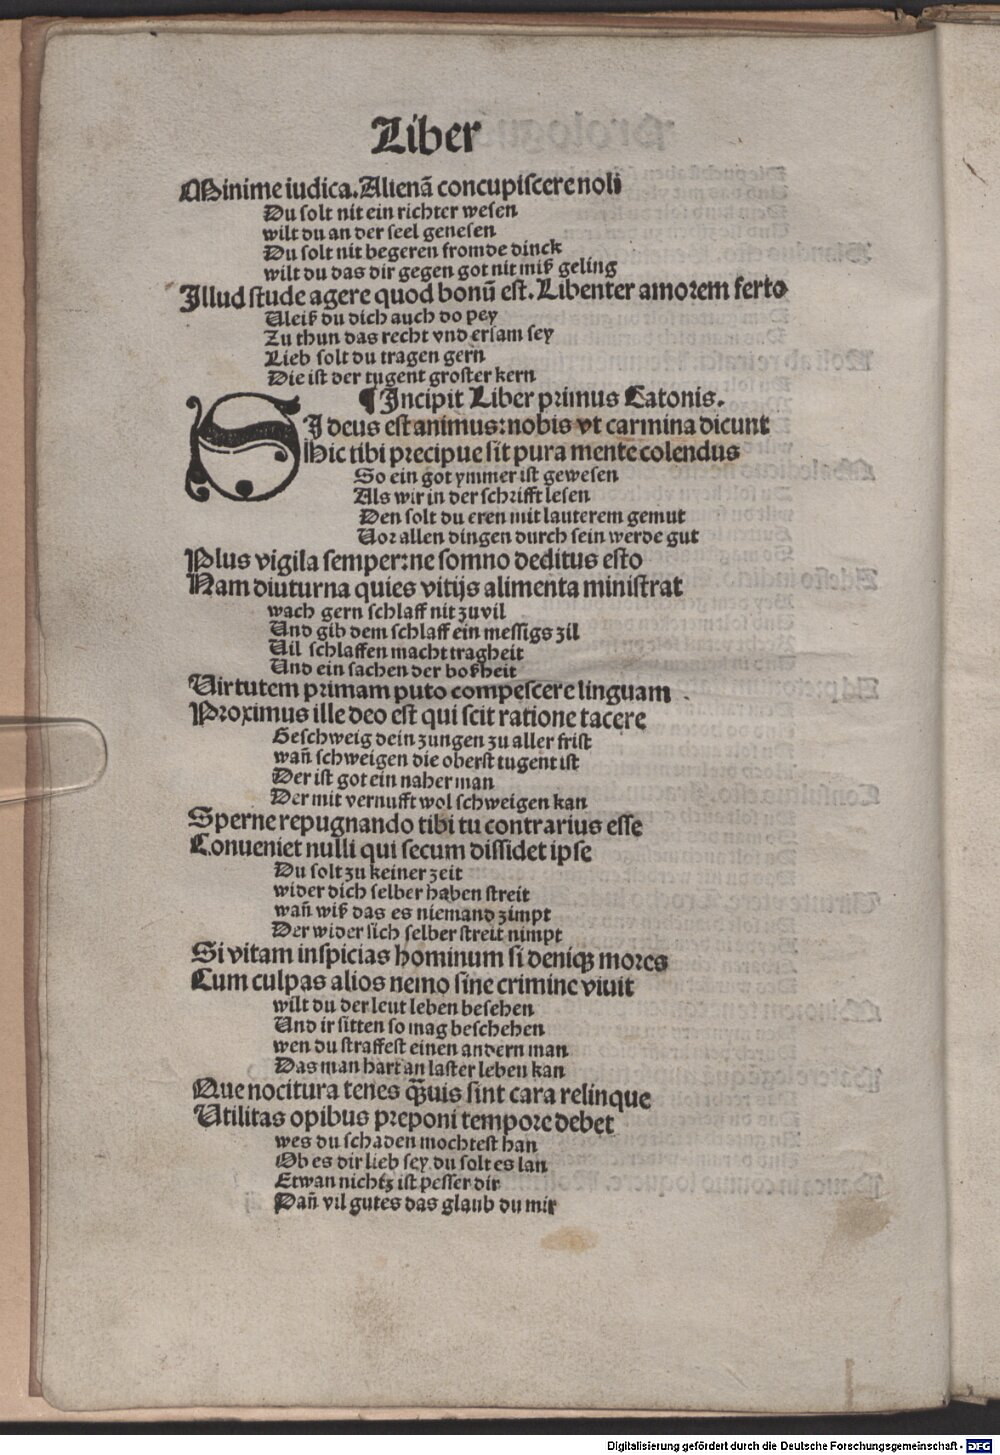 Liber
Minime iudica. Alienā concupiscere noli
Du solt nit ein richter wesen
wilt du an der seel genesen
Du solt nit begeren fromde dinck
wilt du das dir gegen got nit miß geling
Illud stude agere quod bonū est. Libenter amorem ferto
Uleiß du dich auch do pey
Zu thun das recht vnd ersam sey
Lieb solt du tragen gern
Die ist der tugent groster kern
¶ Incipit Liber primus Catonis.
SI deus est animus: nobis vt carmina dicunt
Hic tibi precipue sit pura mente colendus
So ein got ymmer ist gewesen
Als wir in der schrifft lesen
Den solt du eren mit lauterem gemut
Uor allen dingen durch sein werde gut
Plus vigila semper: ne somno deditus esto
Nam diuturna quies vitijs alimenta ministrat
wach gern schlaff nit zu vil
Und gib dem schlaff ein messigs zil
Uil schlaffen macht tragheit
Und ein sachen der boßheit
Uirtutem primam puto compescere linguam
Proximus ille deo est qui scit ratione tacere
Geschweig dein zungen zu aller frist
wañ schweigen die oberst tugent ist
Der ist got ein naher man
Der mit vernufft wol schweigen kan
Sperne repugnando tibi tu contrarius esse
Conueniet nulli qui secum dissidet ipse
Du solt zu keiner zeit
wider dich selber haben streit
wañ wiß das es niemand zimpt
Der wider sich selber streit nimpt
Si vitam inspicias hominum si deniqꝫ mores
Cum culpas alios nemo sine crimine viuit
wilt du der leut leben besehen
Und ir sitten so mag beschehen
wen du straffest einen andern man
Das man hart an laster leben kan
Que nocitura tenes qͣuis sint cara relinque
Utilitas opibus preponi tempore debet
wes du schaden mochtest han
Ob es dir lieb sey du solt es lan
Etwan nichtz ist pesser dir
Dañ vil gutes das glaub du mir
Digitalisierung gefördert durch die Deutsche Forschungsgemeinschaft - DFG